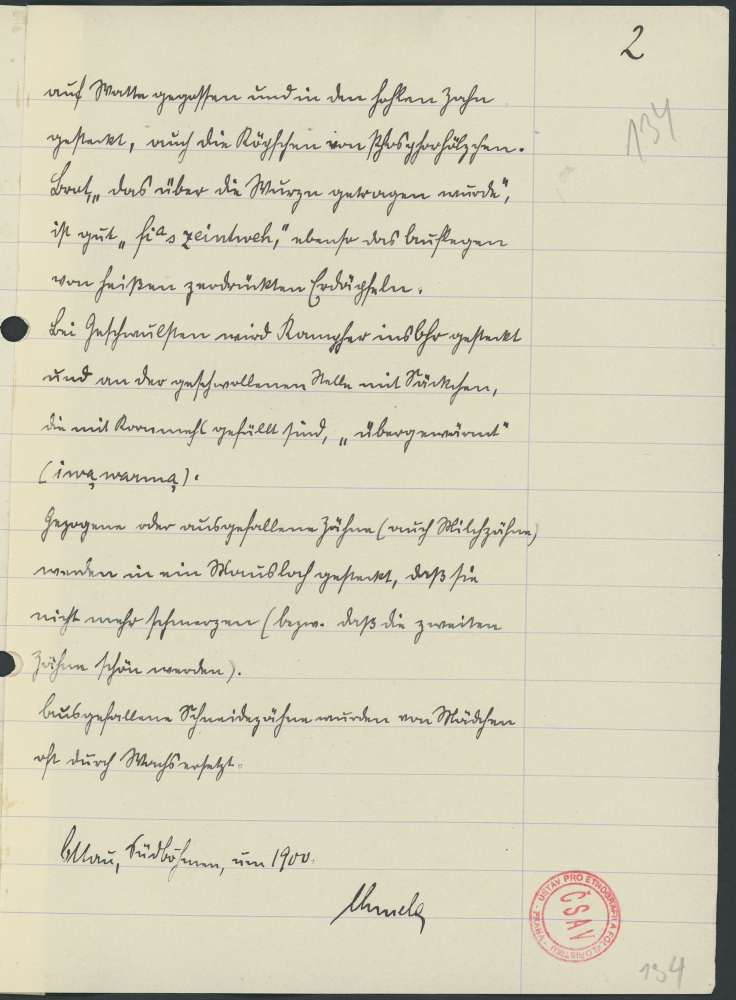 2
134
auf Watte gegossen und in den hohlen Zahn
gesteckt, auch die Köpfchen von Phosphorhölzchen.
Brot, „das über die Wurzn getragen wurde",
ist gut „fias zeintweh," ebenso das Auflegen
von heißen zerdrückten Erdäpfeln.
Bei Geschwulsten wird Kampher ins Ohr gesteckt
und an der geschwollenen Stelle mit Säckchen,
die mit Kornmehl gefüllt sind, „übergewärmt"
(iwą warmą).
Gezogene oder ausgefallene Zähne (auch Milchzähne)
werden in ein Mausloch gesteckt, daß sie
nicht mehr schmerzen (bezw. daß die zweiten
Zähne schön werden).
Ausgefallene Schneidezähne wurden von Mädchen
oft durch Wachs ersetzt.
Ottau, Südböhmen, um 1900.
ÚSTAV PRO ETNOGRAFII A FOLKLORISTIKU - PRAHA -
ČSAV
134